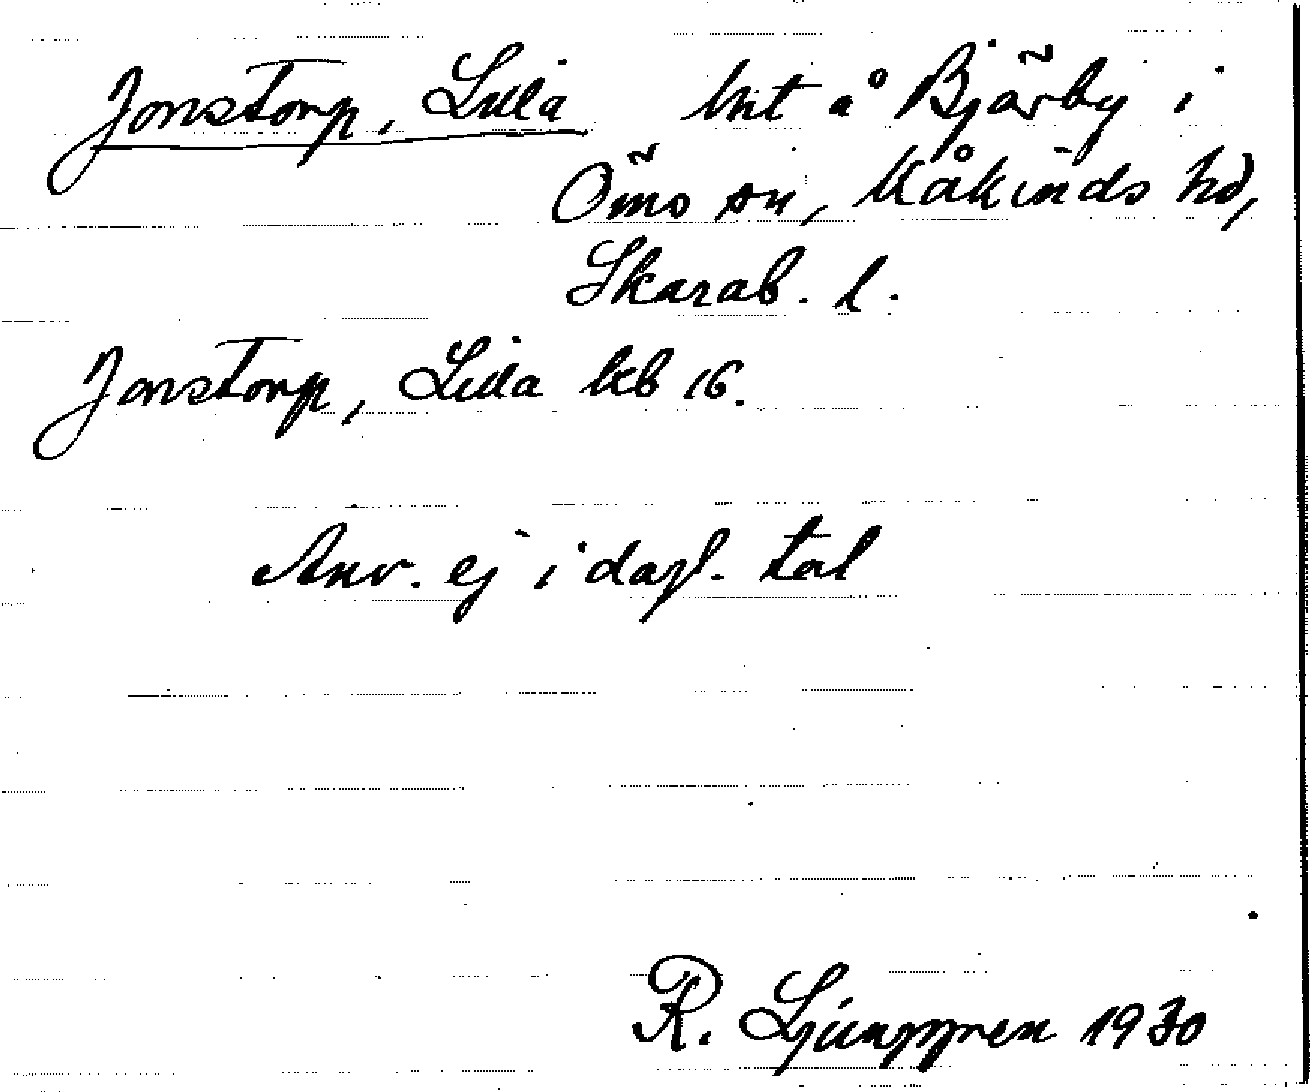 Jonstorp, Lilla hmt å Bjärby i
Ömo sn, Kåkinds hd,
Skarab. l.
Jonstorp, Lilla kb 16.
Anv. ej i dagl. tal
R. Ljunggren 1930